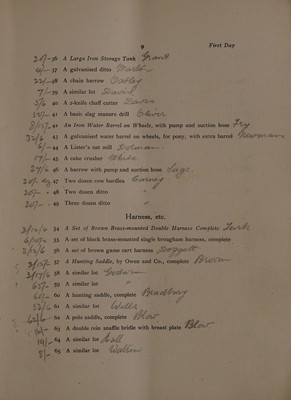 9 First Day
20/- 36 A Large Iron Storage Tank Grant
4/- 37 A galvanised ditto
22/- 38 A chain harrow Oatley
7/- 39 A similar lot David
5/6 40 A 2-knife chaff cutter Davis
20/- 41 A basic slag manure drill Oliver
42 An Iron Water Barrel on Wheels, with pump and suction hose Fry
32/6 43 A galvanised water barrel on wheels, for pony, with extra barrel Newmans
6/- 44 A Lister's nut mill Dolman
17/- 45 A cake crusher White
27/6 46 A barrow with pump and suction hose Sage
20/- 47 Two dozen cow hurdles
20/- 48 Two dozen ditto "
20/- 49 Three dozen ditto "
Harness, etc.
54 A Set of Brown Brass-mounted Double Harness Complete
55 A set of black brass-mounted single brougham harness, complete
56 A set of brown game cart harness Doggett
57 A Hunting Saddle, by Owen and Co., complete Brown
58 A similar lot Godwin
65/- 59 A similar lot "
60/- 60 A hunting saddle, complete Bradbury
52/6 61 A similar lot Wills
62/6 62 A polo saddle, complete Blow
63 A double rein snaffle bridle with breast plate Blow
19/- 64 A similar lot Hall
8/- 65 A similar lot Watkin